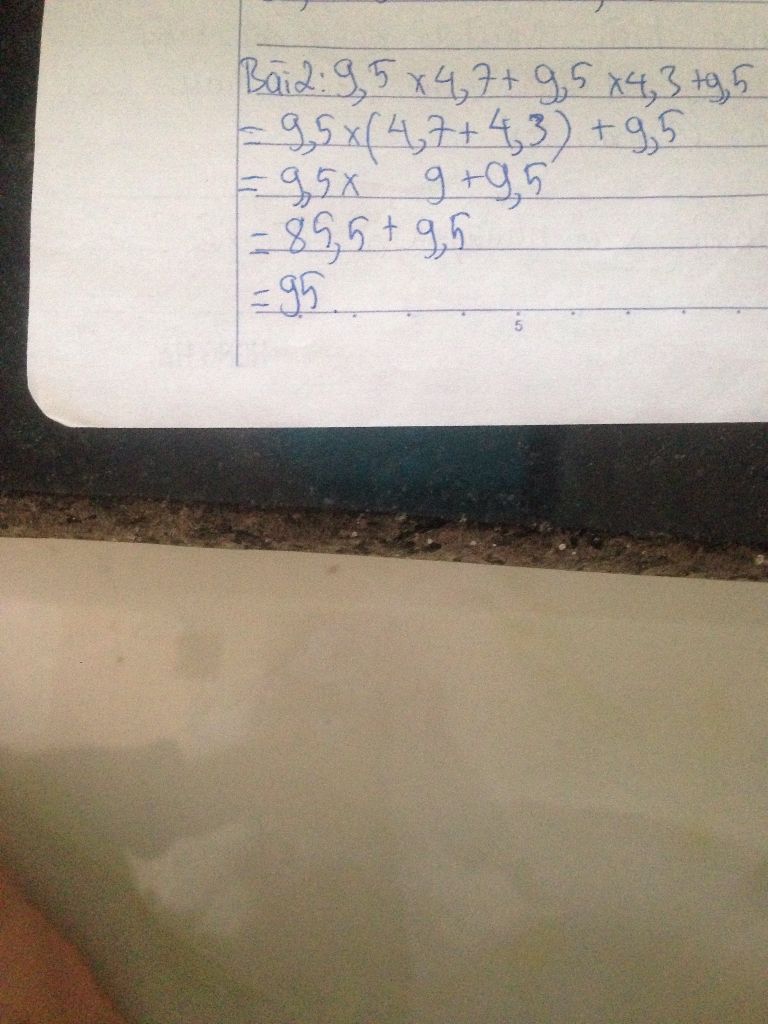 Bài 2: 9,5 x 4,7 + 9,5 x 4,3 + 9,5
= 9,5 x (4,7 + 4,3) + 9,5
= 9,5 x 9 + 9,5
= 85,5 + 9,5
= 95.
5